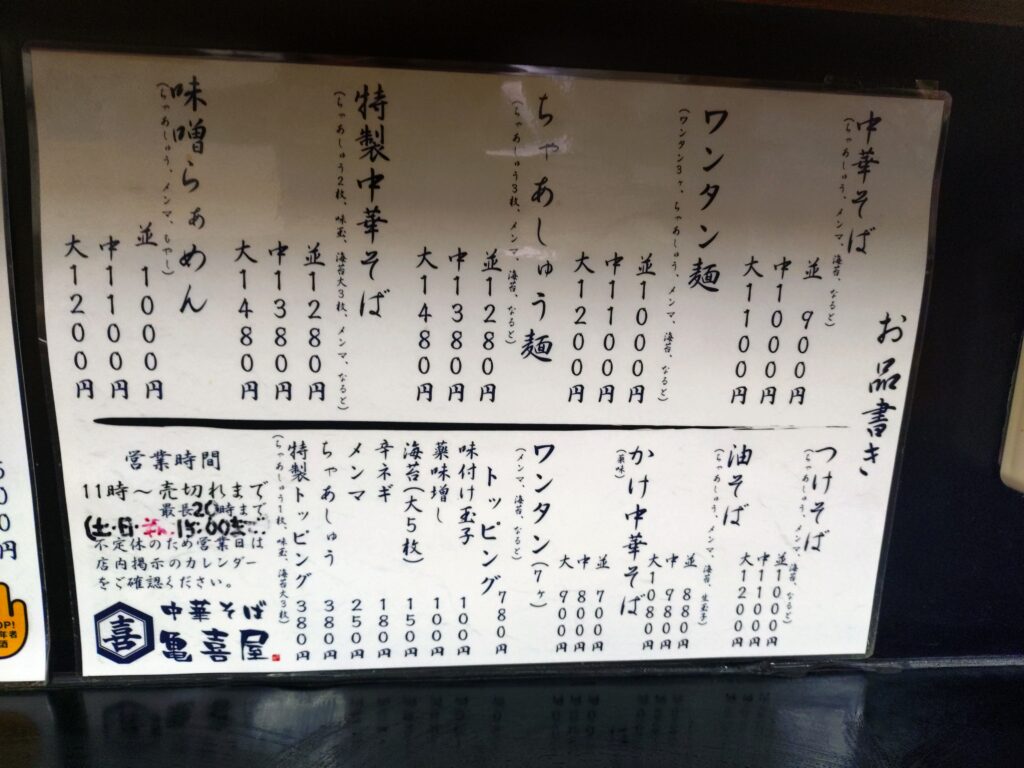 お品書き
中華そば
(ちゃあしゅう、メンマ、海苔、なると)
並 900円
中1000円
大1100円
ワンタン麺
(ワンタン3ヶ、ちゃあしゅう、メンマ、海苔、なると)
並1000円
中1100円
大1200円
ちゃあしゅう麺
(ちゃあしゅう3枚、メンマ、海苔、なると)
並1280円
中1380円
大1480円
特製中華そば
(ちゃあしゅう2枚、味玉、海苔大3枚、メンマ、なると)
並1280円
中1380円
大1480円
味噌らぁめん
(ちゃあしゅう、メンマ、もやし)
並 1000円
中1100円
大1200円
つけそば
(ちゃあしゅう、メンマ、海苔、なると)
並1000円
中1100円
大1200円
油そば
(ちゃあしゅう、メンマ、海苔、生玉子)
並 880円
中 980円
大1080円
かけ中華そば
(薬味)
並 700円
中 800円
大 900円
ワンタン(7ヶ)
(メンマ、海苔、なると)
780円
トッピング
味付け玉子 100円
薬味増し 100円
海苔(大5枚) 150円
辛ネギ 180円
メンマ 250円
ちゃあしゅう 380円
特製トッピング 380円
(ちゃあしゅう1枚、味玉、海苔大3枚)
営業時間
11時～売切れまで
最長20時まで
(土・日・ 15:00まで)
不定休のため営業日は
店内掲示のカレンダー
をご確認ください。
喜
中華そば
亀喜屋
円